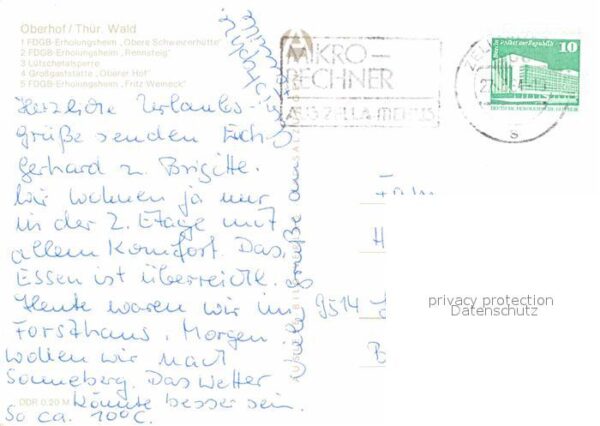 Oberhof / Thür. Wald
1 FDGB-Erholungsheim „Obere Schweizerhütte"
2 FDGB-Erholungsheim „Rennsteig"
3 Lütschetalsperre
4 Großgaststätte „Oberer Hof"
5 FDGB-Erholungsheim „Fritz Weineck"
Herzliche Urlaubs-
grüße senden Euch
Gerhard u. Brigitte.
Wir wohnen ja nur
in der 2. Etage mit
allem Komfort. Das
Essen ist überreichl.
Heute waren wir im
Forsthaus. Morgen
wollen wir nach
Sonneberg. Das Wetter
könnte besser sein.
So ca. 10°C.
DDR 0,20 M
Viele Grüße an
MIKRO-
RECHNER
ZELLA-MEHLIS
Palast der Republik
10
9514
privacy protection
Datenschutz